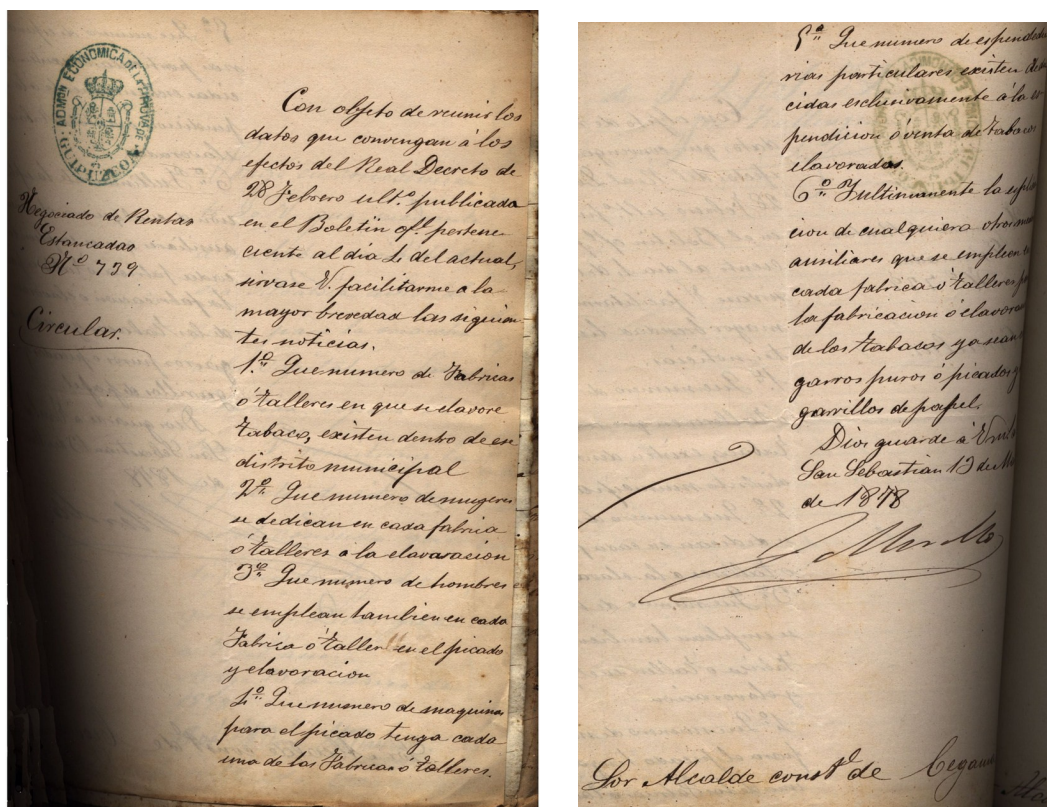 ADMON ECONOMICA DE LA PROVINCIA DE
GUIPUZCOA
Negociado de Rentas
Estancadas
Nº 739
Circular.
Con objeto de reunir los
datos que convengan á los
efectos del Real Decreto de
28 Febrero ultº. publicada
en el Boletin ofl. pertene-
ciente al dia 4 del actual,
sirvase V. facilitarme a la
mayor brevedad las siguien-
tes noticias.
1º. Que numero de Fabricas
ó talleres en que se elavore
tabaco, existen dentro de ese
distrito municipal
2º. Que numero de mugeres
se dedican en cada fabrica
ó talleres a la elavaración
3º. Que numero de hombres
se emplean tambien en cada
Fabrica ó taller en el picado
y elavoracion
4º. Que numero de maquinas
para el picado tenga cada
una de las Fabricas ó talleres.
5º. Que numero de espendedu
rias particulares existen
cidas esclusivamente á la
pendicion ó venta de tabacos
elavorados.
6º. Y ultimamente la
cion de cualquiera otros
ausiliares que se empleen
cada fabrica ó talleres
la fabricacion ó elavora
de los tabacos ya sean
garros puros ó picados y
garrillos de papel.
Dios guarde á V.
San Sebastian 13 de
de 1878
Sor Alcalde constl de